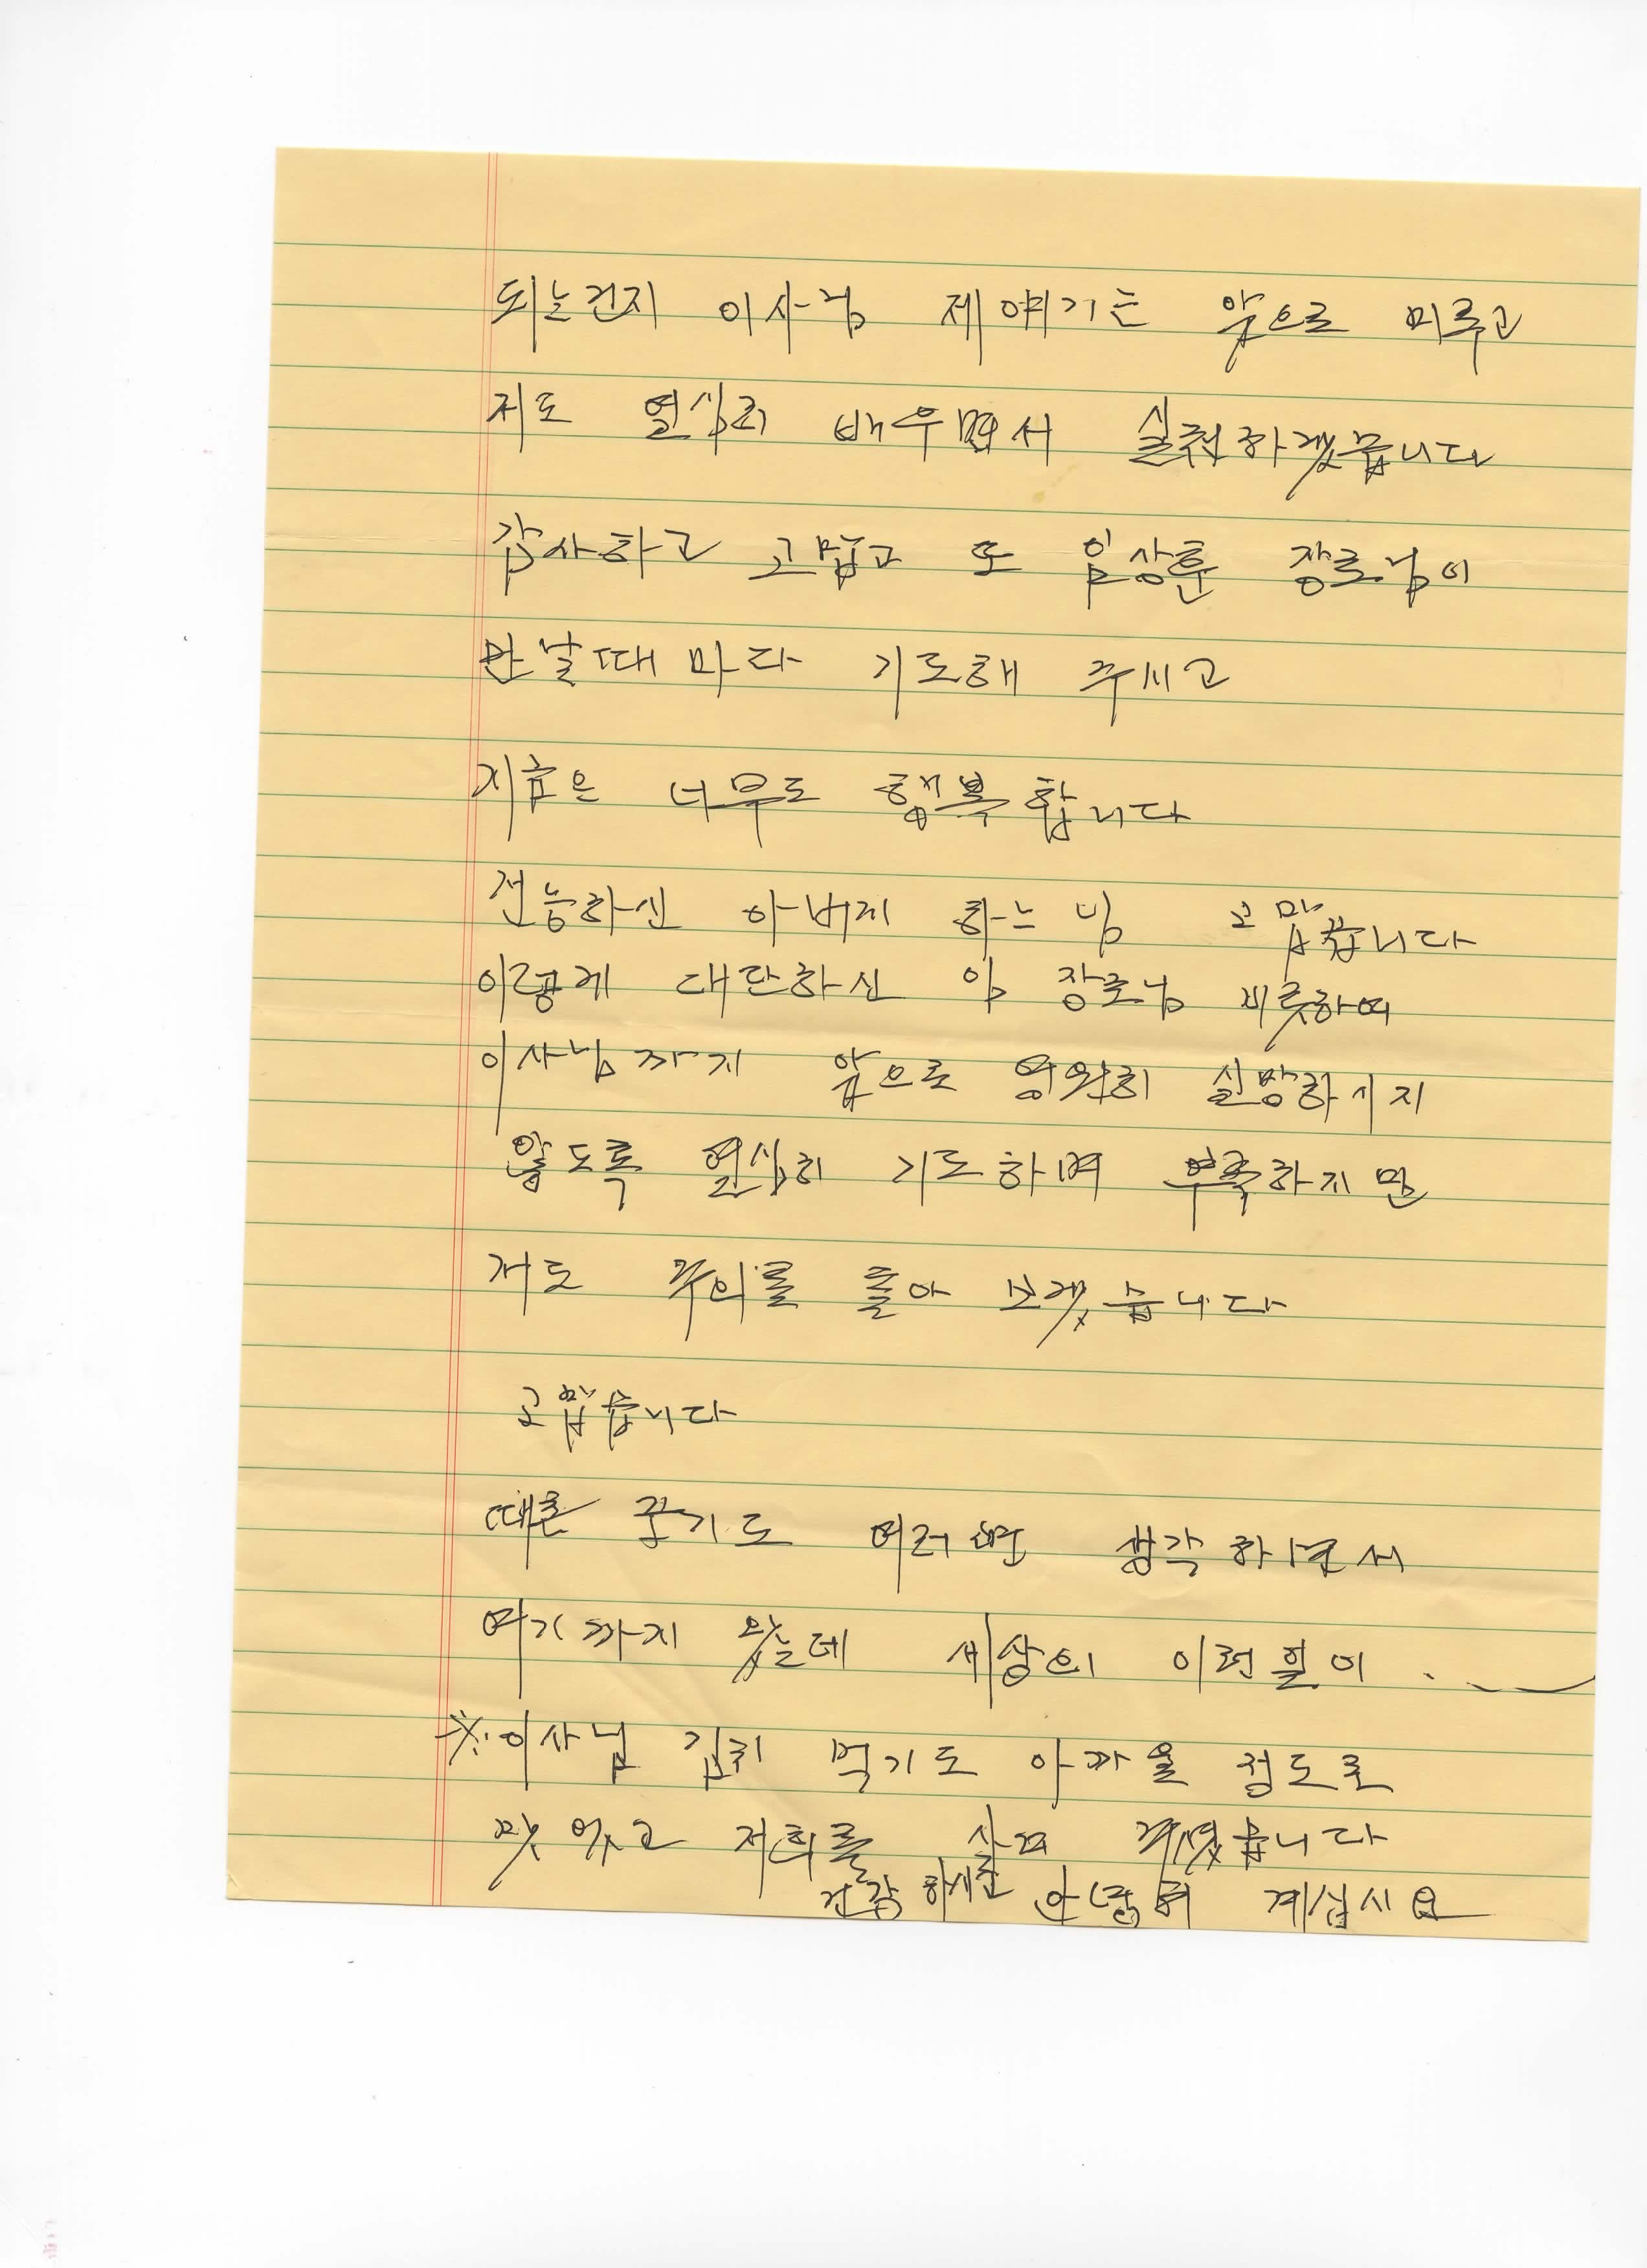 되는건지 이사님 제 야기는 앞으로 미루고
저도 열심히 배우면서 실천하겠읍니다
감사하고 고맙고 또 임상훈 장로님이
만날때 마다 기도해 주시고
지금은 너무도 행복 합니다
전능하신 아버지 하느님 고맙습니다
이렇게 대단하신 임 장로님 비롯하여
이사님까지 앞으로 영원히 실망하시지
않도록 열심히 기도하며 부족하지만
저도 주위를 돌아 보겠습니다
고맙습니다
때론 죽기도 여러번 생각 하면서
여기까지 왔는데 세상의 이런일이
※ 이사님 김치 먹기도 아까울 정도로
맛있고 저희를 살려 주셨읍니다
건강 하세요 안녕히 계십시요